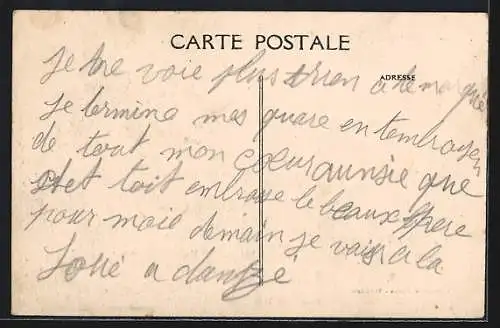 CARTE POSTALE
ADRESSE
Je ne voie plus rien a te marquer
Je termine mes quare en tembrasen
de tout mon cœur aunsie que
et toit embrasse le beaux frere
pour moie demain je vais a la
a danze